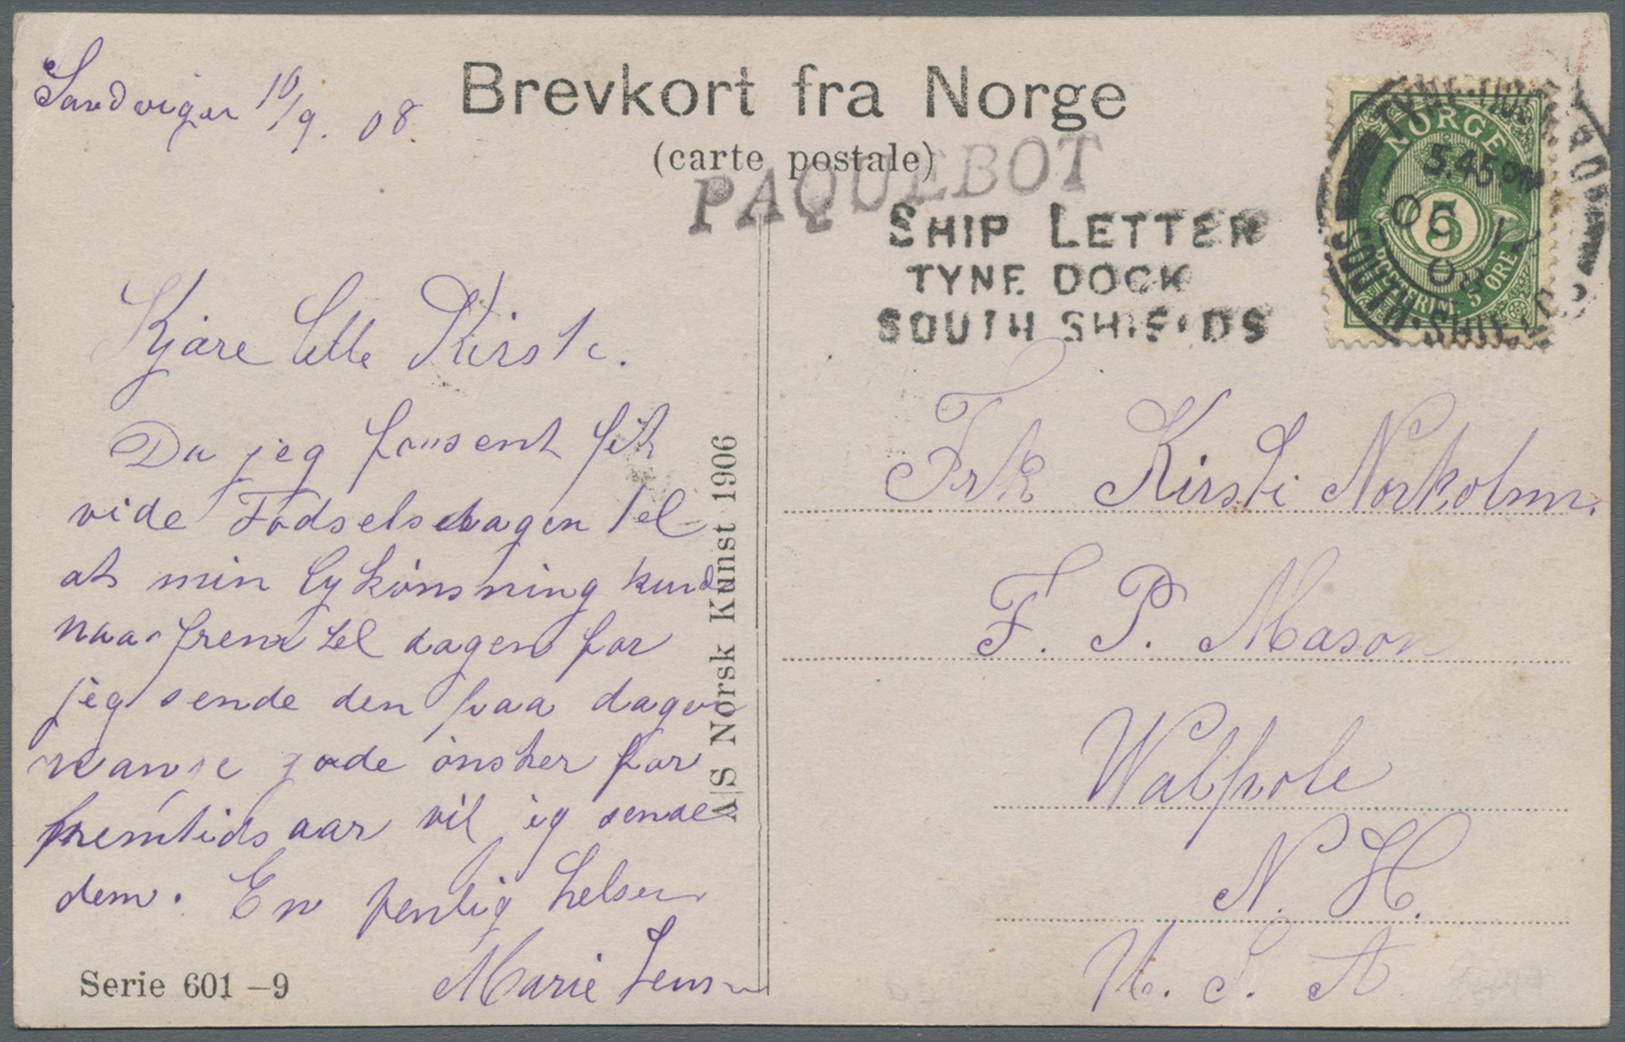 Sandvigen 10/9. 08.
Brevkort fra Norge
(carte postale)
PAQUEBOT
SHIP LETTER
TYNE DOCK
SOUTH SHIELDS
NORGE
5
POSTFRIM. 5 ØRE
TYNE DOCK
5.45 PM
OC 1
08
SHIELDS
Kjære lille Kirsti.
Da jeg forsent fik
vide Fødselsdagen til
at min lykønsning kunde
naa frem til dagen for
jeg sende den paa dagen
mange gode ønsker for
fremtids aar vil jeg sende
dem. En venlig helsen
Marie Jensen
Serie 601 – 9
A/S Norsk Kunst 1906
Frk Kirsti Norholm.
F. P. Mason
Walpole
N. H.
U. S. A.